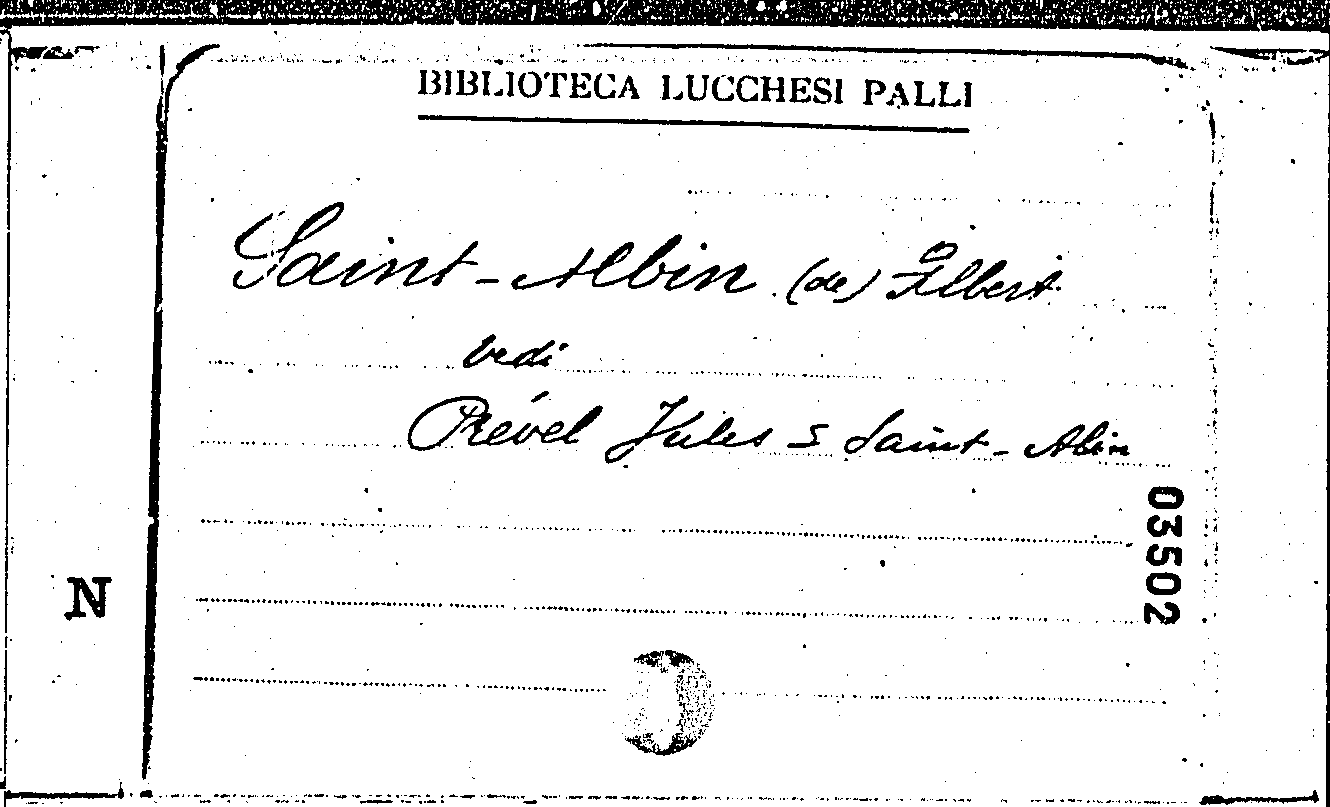 BIBLIOTECA LUCCHESI PALLI
Saint-Albin (de) Albert
vedi
Prével Jules e Saint-Albin
03502
N